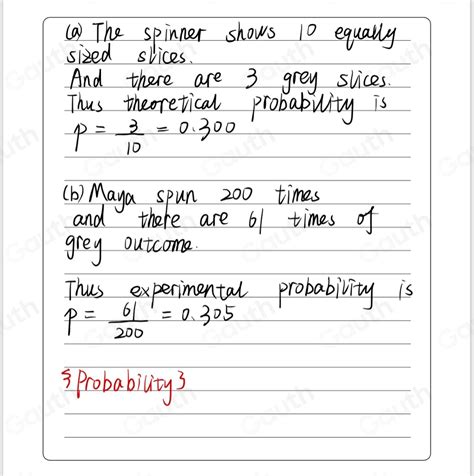 (a) The spinner shows 10 equally
sized slices.
And there are 3 grey slices.
Thus theoretical probability is
p = 3/10 = 0.300
(b) Maya spun 200 times
and there are 61 times of
grey outcome.
Thus experimental probability is
p = 61/200 = 0.305
{Probability}
Gauth